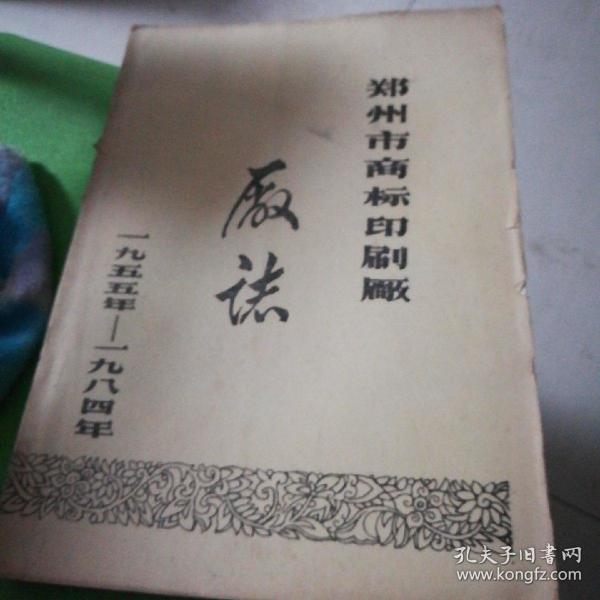 郑州市商标印刷厰
厰誌
一九五五年—一九八四年
孔夫子旧书网
www.kongfz.com